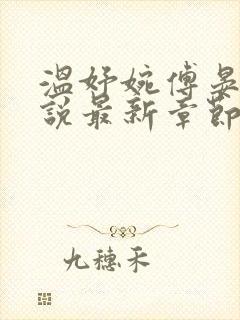 温妤婉傅晏
説最新章節
九穗禾